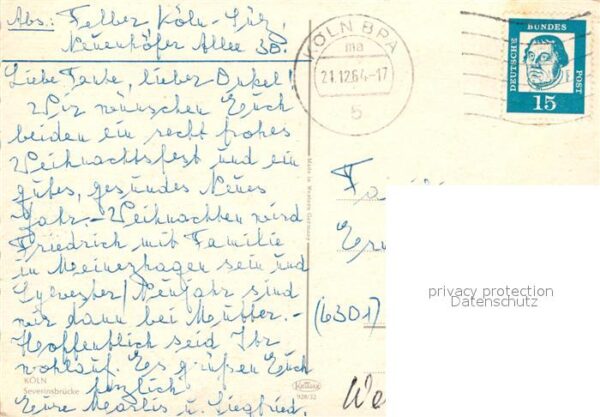 Abs.: Feller Köln-Sülz,
Neuenhöfer Allee 30.
Liebe Tante, lieber Onkel!
Wir wünschen Euch
beiden ein recht frohes
Weihnachtsfest und ein
gutes, gesundes Neues
Jahr. - Weihnachten wird
Friedrich mit Familie
in Meinerzhagen sein und
Sylvester/Neujahr sind
wir dann bei Mutter. -
Hoffentlich seid Ihr
wohlauf. Es grüßen Euch
herzlich
Eure Marlis u. Siegfried.
KÖLN
Severinsbrücke
KÖLN BPA
ma
21.12.64-17
5
DEUTSCHE BUNDES POST
15
(6301)
We
privacy protection
Datenschutz
928/32